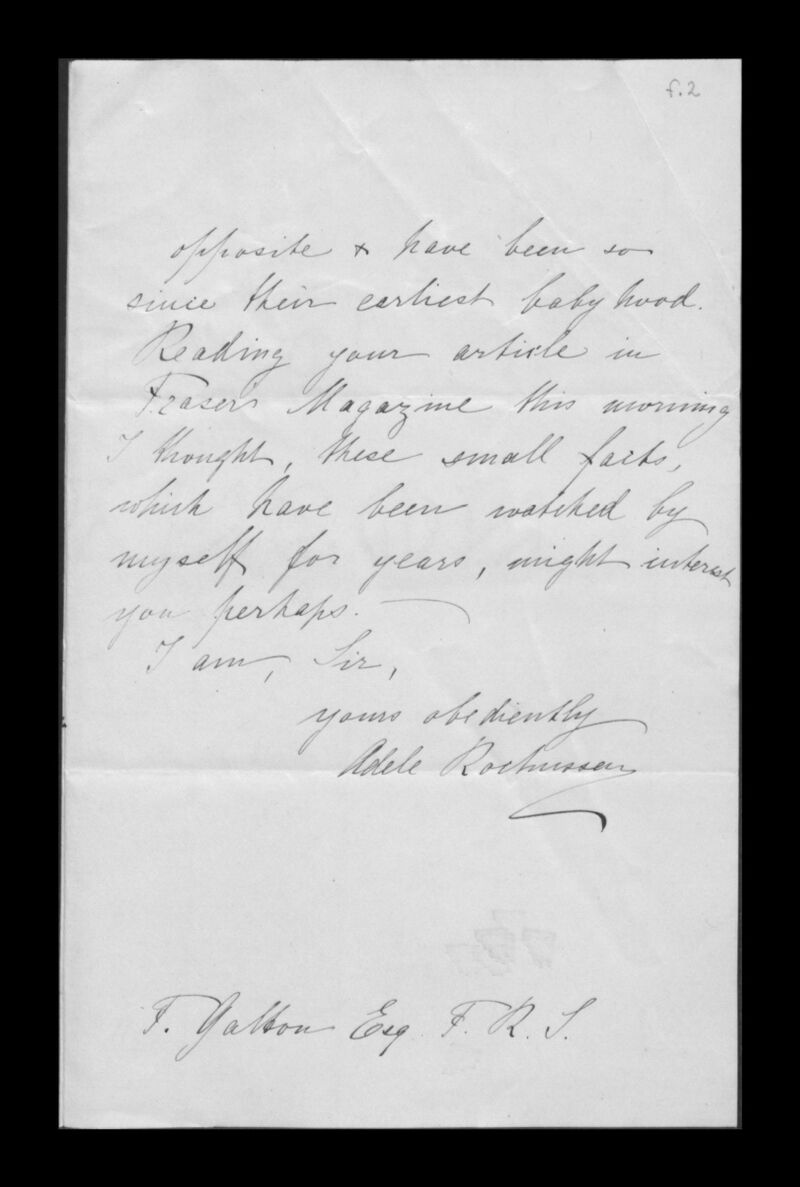 f.2
opposite & have been so
since their earliest babyhood.
Reading your article in
Fraser's Magazine this morning
I thought, these small facts,
which have been watched by
myself for years, might interest
you perhaps. —
I am, Sir,
yours obediently
Adele
F. Galton Esq F. R. S.